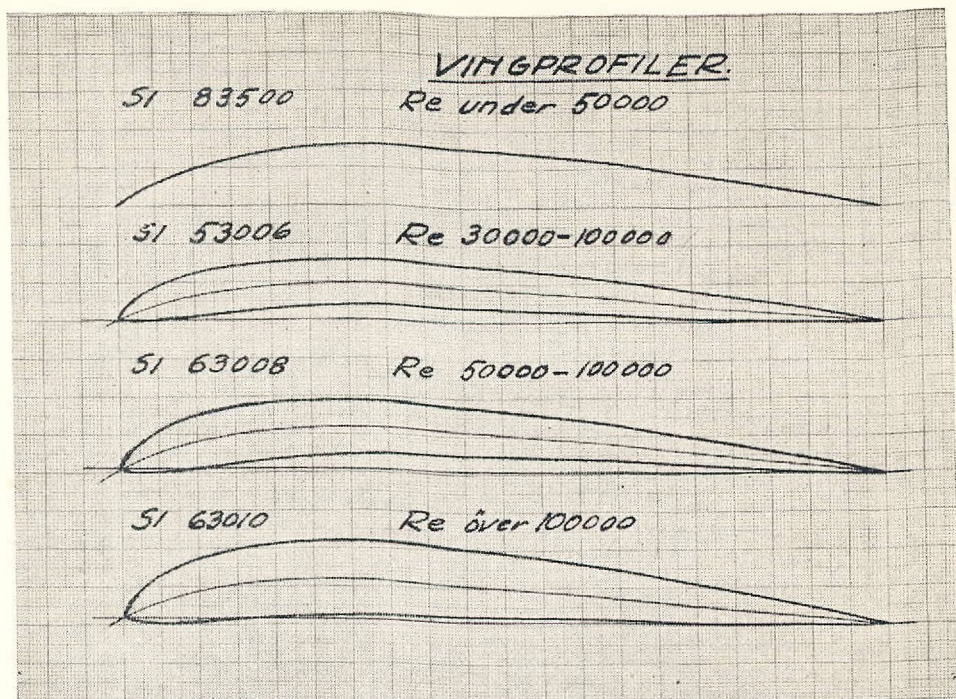 VINGPROFILER.
SI 83500 Re under 50000
SI 53006 Re 30000-100000
SI 63008 Re 50000-100000
SI 63010 Re över 100000